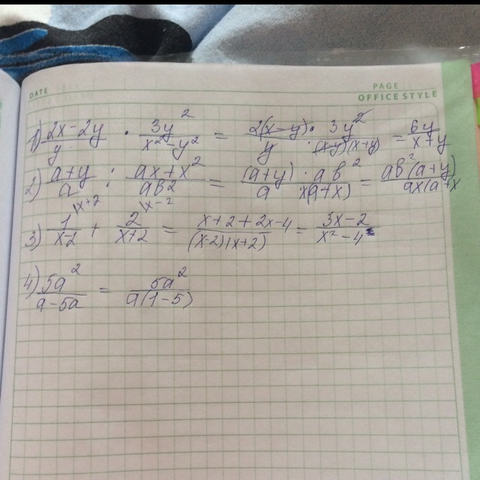 DATE PAGE
OFFICE STYLE
1) (2x-2y)/y · 3y²/(x²-y²) = 2(x-y)·3y²/(y·(x-y)(x+y)) = 6y/(x+y)
2) (a+y)/a : (ax+x²)/(ab²) = (a+y)·ab²/(a·x(a+x)) = ab²(a+y)/(ax(a+x
3) 1/(x-2) |x+2 + 2/(x+2) |x-2 = (x+2+2x-4)/((x-2)(x+2)) = (3x-2)/(x²-4)
4) 5a²/(a-5a) = 5a²/(a(1-5))